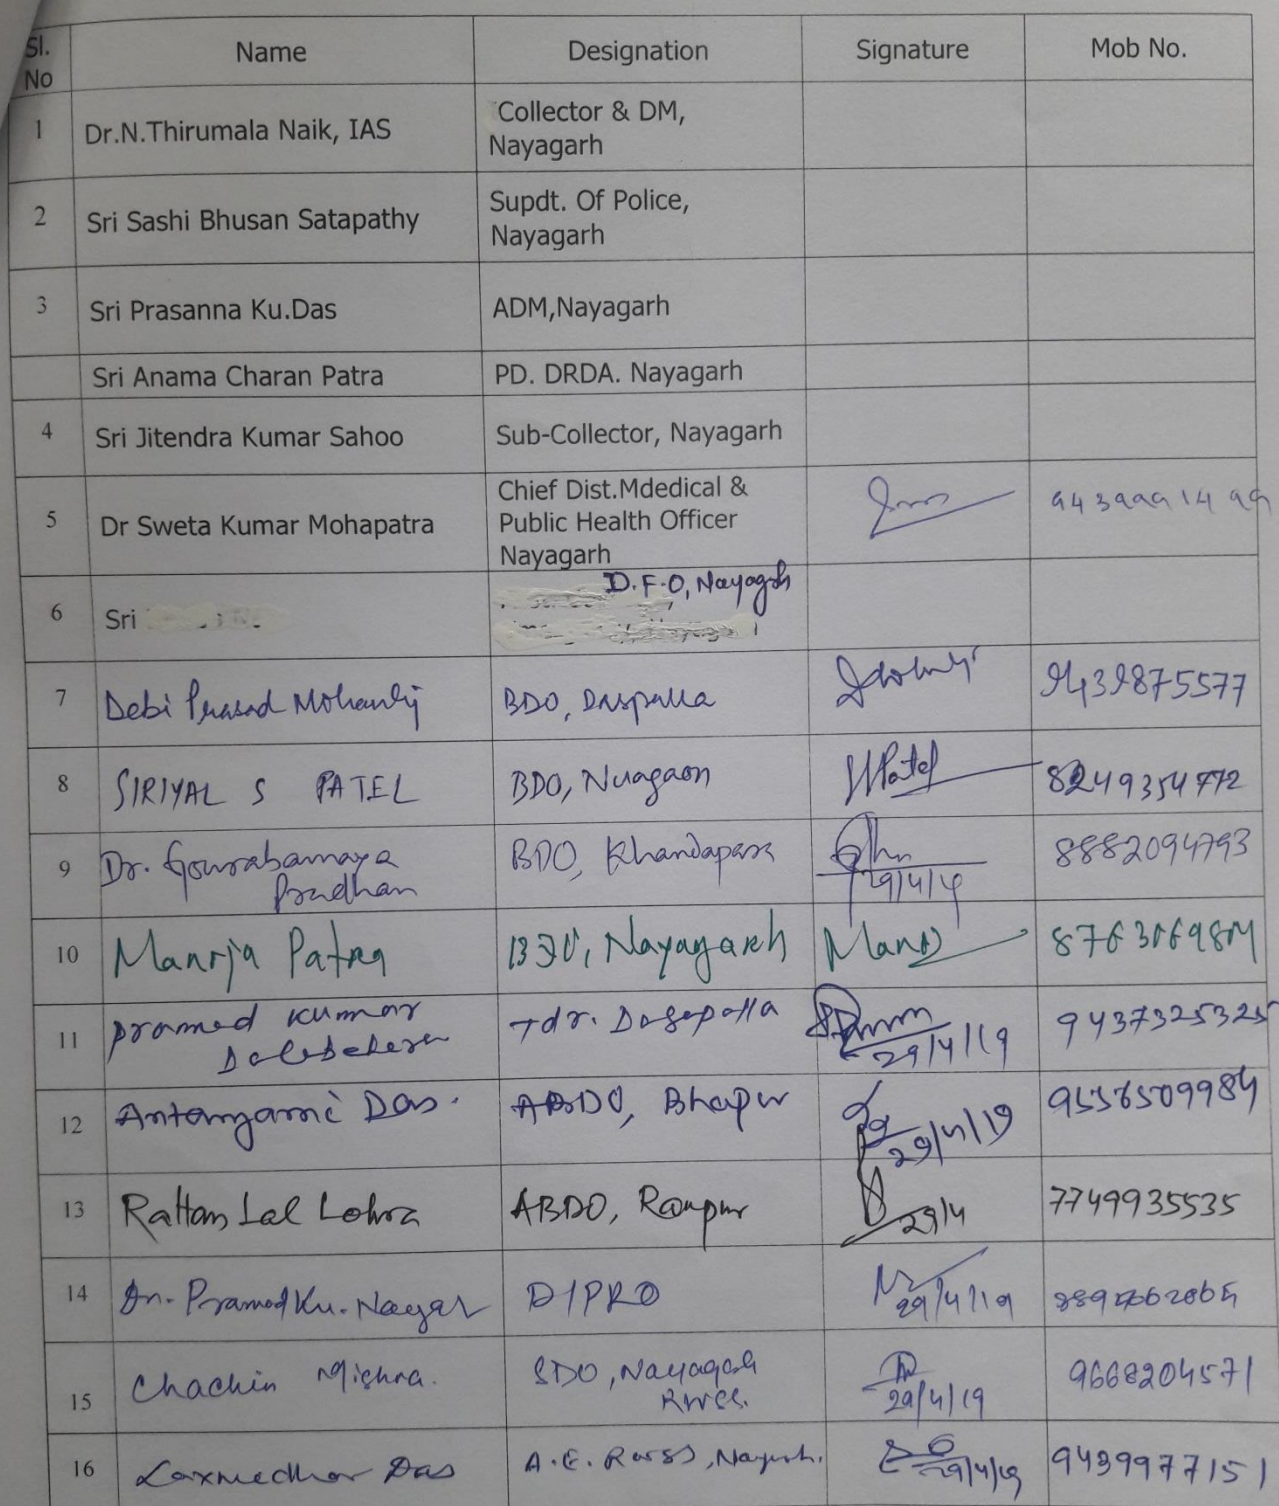 Sl. No Name Designation Signature Mob No.
1 Dr.N.Thirumala Naik, IAS Collector & DM,
Nayagarh
2 Sri Sashi Bhusan Satapathy Supdt. Of Police,
Nayagarh
3 Sri Prasanna Ku.Das ADM,Nayagarh
Sri Anama Charan Patra PD. DRDA. Nayagarh
4 Sri Jitendra Kumar Sahoo Sub-Collector, Nayagarh
5 Dr Sweta Kumar Mohapatra Chief Dist.Mdedical &
Public Health Officer
Nayagarh
6 Sri D.F.O, Nayagarh
7 Debi Prasad Mohanty BDO, Daspalla 9439875577
8 SIRIYAL S PATEL BDO, Nuagaon Patel 8249354772
9 Dr. Gourabamaya
Pradhan BDO, Khandapara 29/4/19 8882094793
10 Manoja Patra BDO, Nayagarh
11 Pramod Kumar
Tdr. Dasapalla 29/4/19 9437325325
12 Antaryami Das. ABDO, Bhapur 29/4/19
13 Rattan Lal Lohra ABDO, Ranpur 29/4 7749935535
14 Dr. Pramod Ku. Nayak DIPRO 29/4/19
15 Chachin Mishra. SDO, Nayagarh
RWSS. 29/4/19 9668204571
16 Laxmedhar Das A.E. RWSS, 29/4/19 9439977151